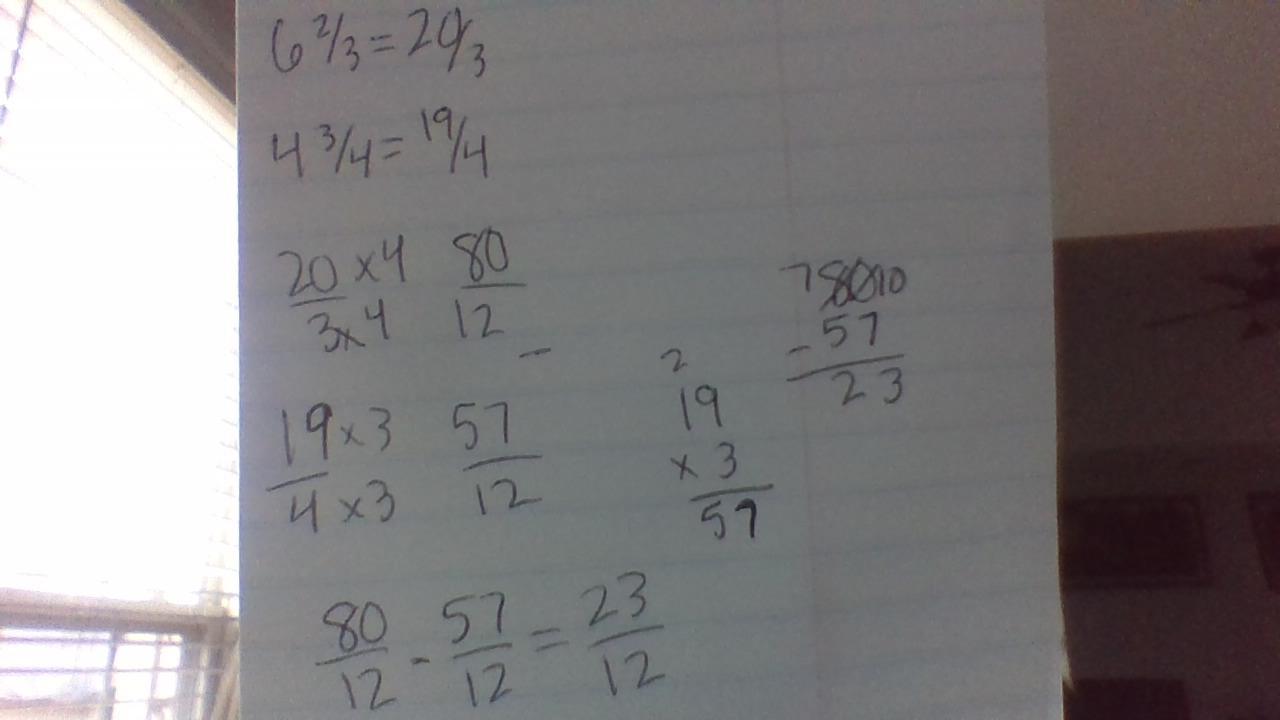 6 2/3 = 20/3
4 3/4 = 19/4
20 x 4
3 x 4
80
12
-
19 x 3
4 x 3
57
12
2
19
x 3
57
7 80 10
- 57
23
80/12 - 57/12 = 23/12